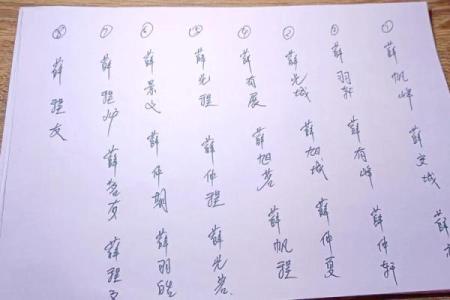 ①薛帆峰 薛奕城
②薛羽轩 薛有峰 薛仲轩
③薛光城 薛旭城 薛仲夏
④薛有展 薛旭茗 薛帆程
⑤薛光程 薛仲程 薛光茗
⑥薛景 薛仲期 薛羽皓
⑦薛程 薛茗 薛程
⑧薛程友